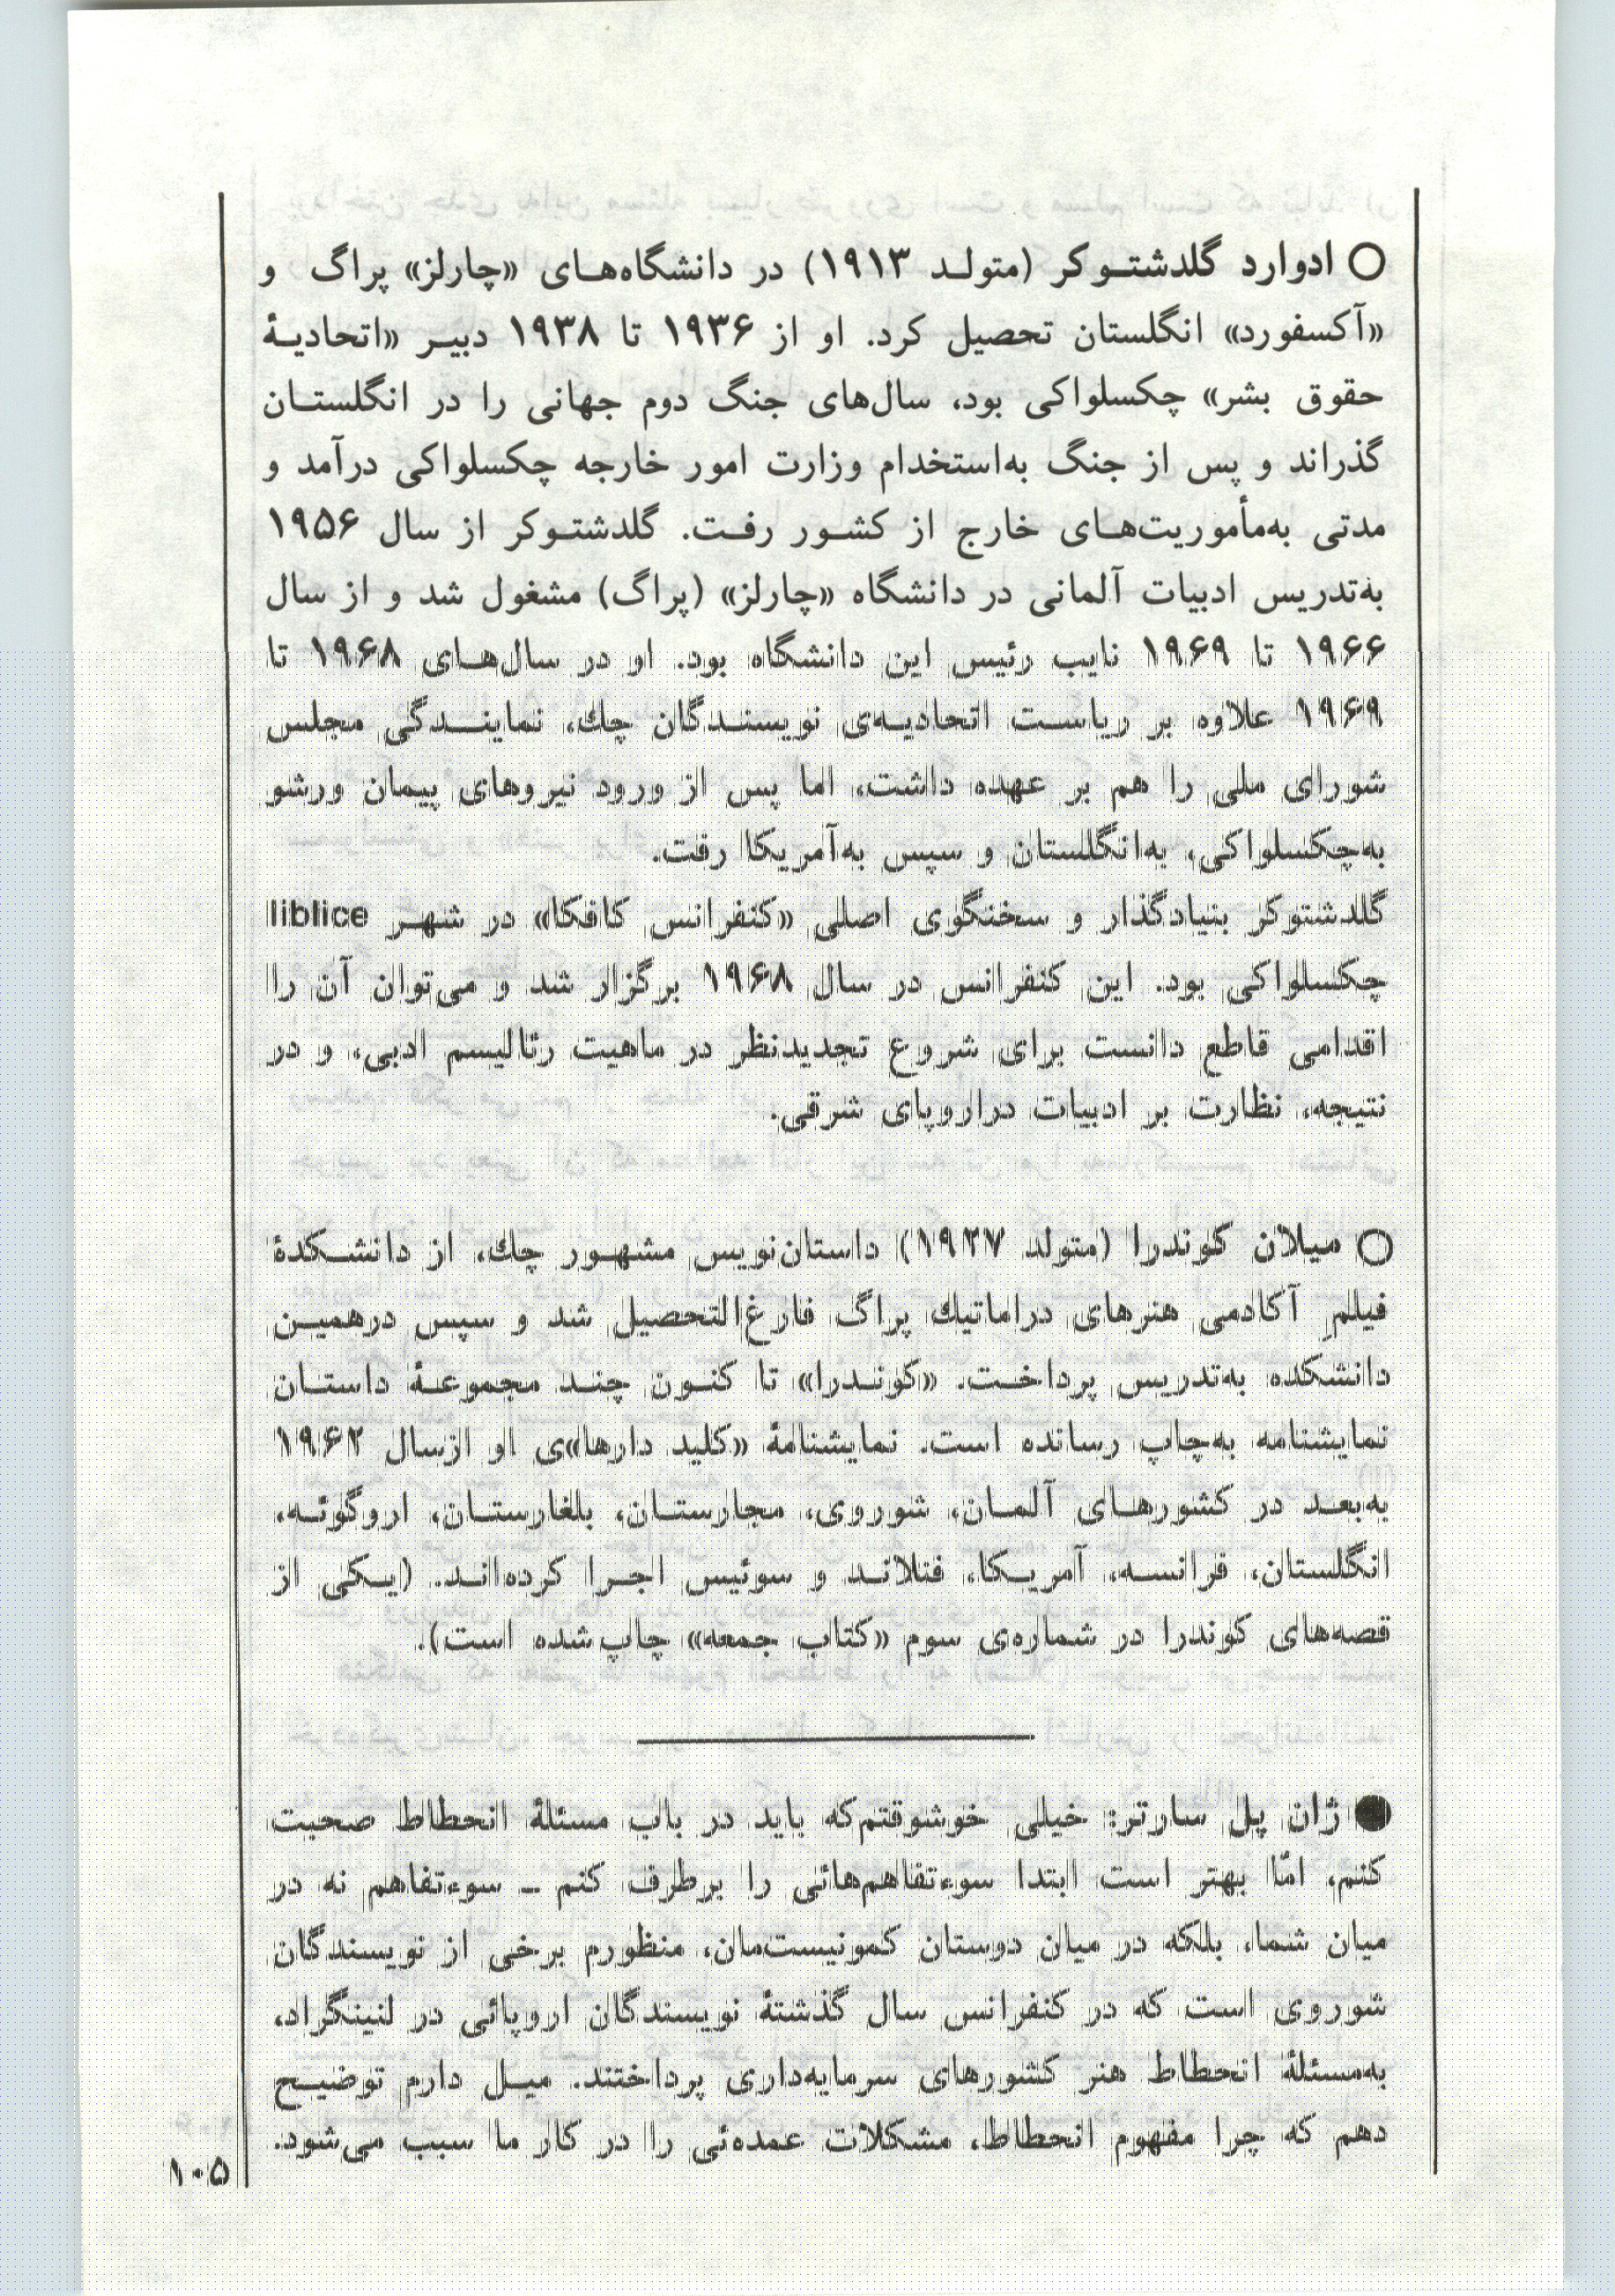 ○ ادوارد گلدشتوکر (متولد ۱۹۱۳) در دانشگاه‌های «چارلز» پراگ و
«آکسفورد» انگلستان تحصیل کرد. او از ۱۹۳۶ تا ۱۹۳۸ دبیر «اتحادیهٔ
حقوق بشر» چکسلواکی بود، سال‌های جنگ دوم جهانی را در انگلستان
گذراند و پس از جنگ به‌استخدام وزارت امور خارجه چکسلواکی درآمد و
مدتی به‌مأموریت‌های خارج از کشور رفت. گلدشتوکر از سال ۱۹۵۶
به‌تدریس ادبیات آلمانی در دانشگاه «چارلز» (پراگ) مشغول شد و از سال
۱۹۶۶ تا ۱۹۶۹ نایب رئیس این دانشگاه بود. او در سال‌های ۱۹۶۸ تا
۱۹۶۹ علاوه بر ریاست اتحادیه‌ی نویسندگان چك، نمایندگی مجلس
شورای ملی را هم بر عهده داشت، اما پس از ورود نیروهای پیمان ورشو
به‌چکسلواکی، به‌انگلستان و سپس به‌آمریکا رفت.
گلدشتوکر بنیادگذار و سخنگوی اصلی «کنفرانس کافکا» در شهر liblice
چکسلواکی بود. این کنفرانس در سال ۱۹۶۸ برگزار شد و می‌توان آن را
اقدامی قاطع دانست برای شروع تجدیدنظر در ماهیت رئالیسم ادبی، و در
نتیجه، نظارت بر ادبیات دراروپای شرقی.
○ میلان کوندرا (متولد ۱۹۲۷) داستان‌نویس مشهور چك، از دانشکدهٔ
فیلم آکادمی هنرهای دراماتیك پراگ فارغ‌التحصیل شد و سپس درهمین
دانشکده به‌تدریس پرداخت. «کوندرا» تا کنون چند مجموعهٔ داستان
نمایشنامه به‌چاپ رسانده است. نمایشنامهٔ «کلید دارها»ی او ازسال ۱۹۶۲
به‌بعد در کشورهای آلمان، شوروی، مجارستان، بلغارستان، اروگوئه،
انگلستان، فرانسه، آمریکا، فنلاند و سوئیس اجرا کرده‌اند. (یکی از
قصه‌های کوندرا در شماره‌ی سوم «کتاب جمعه» چاپ‌شده است).
● ژان پل سارتر: خیلی خوشوقتم‌که باید در باب مسئلهٔ انحطاط صحبت
کنم، امّا بهتر است ابتدا سوءتفاهم‌هائی را برطرف کنم ـ سوءتفاهم نه در
میان شما، بلکه در میان دوستان کمونیست‌مان، منظورم برخی از نویسندگان
شوروی است که در کنفرانس سال گذشتهٔ نویسندگان اروپائی در لنینگراد،
به‌مسئلهٔ انحطاط هنر کشورهای سرمایه‌داری پرداختند. میل دارم توضیح
دهم که چرا مفهوم انحطاط، مشکلات عمده‌ئی را در کار ما سبب می‌شود.
۱۰۵